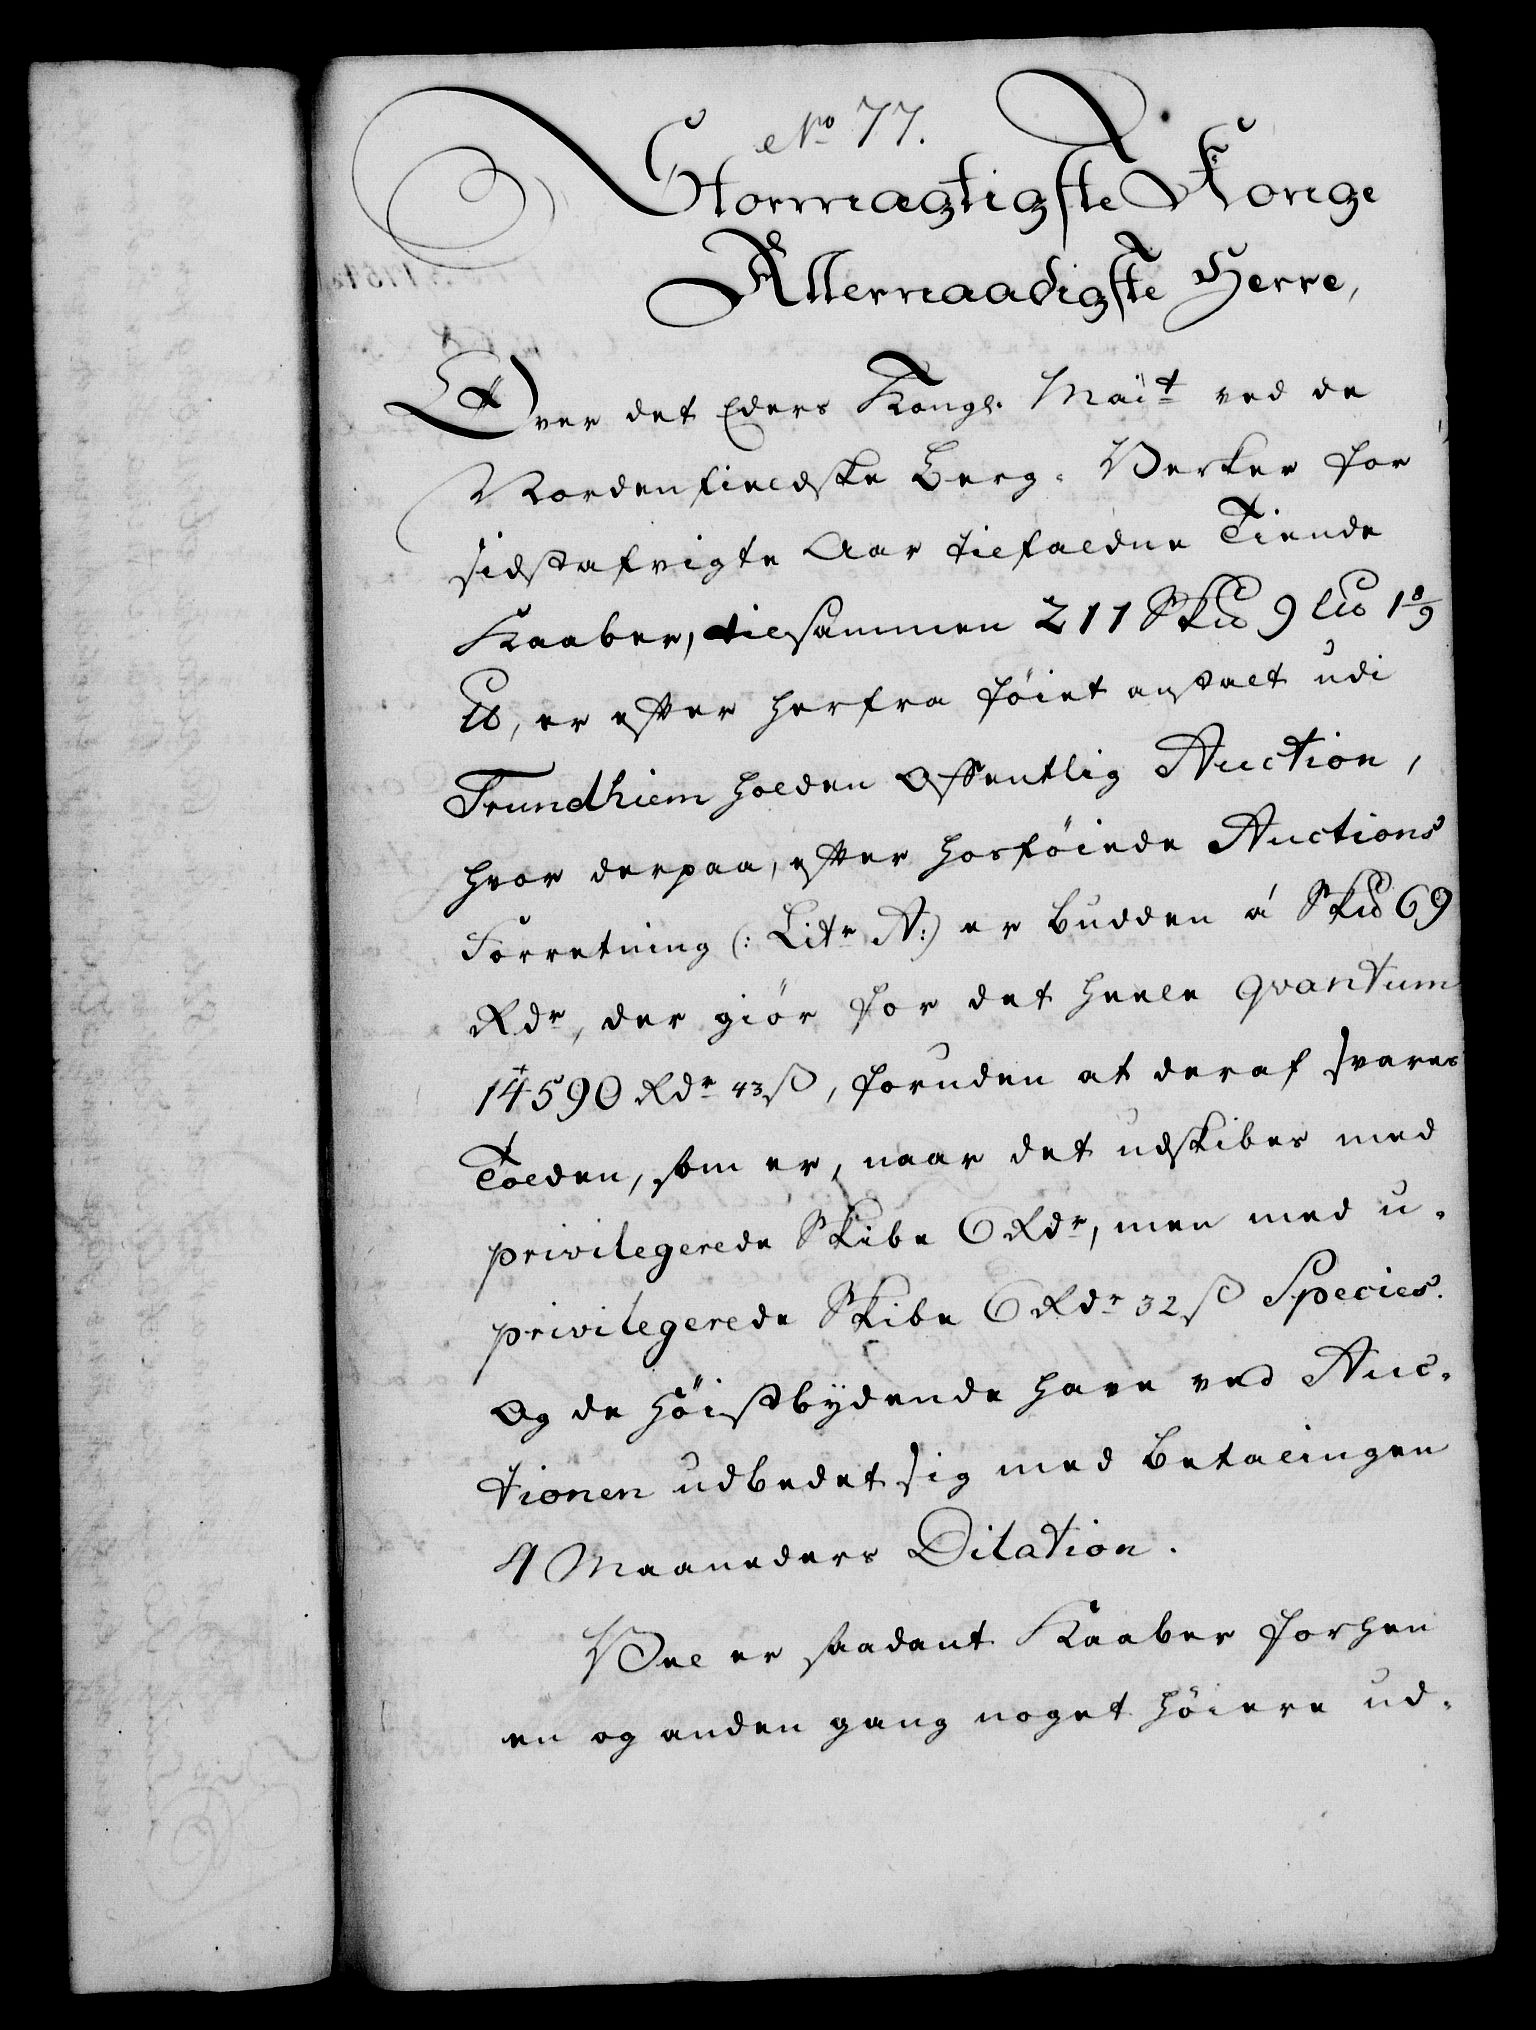 No 77.
Stormægtigste Konge
Allernaadigste Herre,
Over det Eders Kongl. Mait ved de
Nordenfieldske Berg-Verker for
sidstafvigte Aar tilfaldne Tiende
Kaaber, tilsammen 211 Sk℔ 9 L℔ 1 8/9
℔, er efter herfra føiet anstalt udi
Trundhiem holden offentlig Auction,
hvor derpaa, efter hosføiede Auctions
Forretning (: Litr A:) er budden á Sk℔ 69
Rdr, der giør for det heele qvantum
14590 Rdr 43 ß, foruden at deraf svares
Tolden, som er, naar det udskibes med
privilegerede Skibe 6 Rdr, men med u-
privilegerede Skibe 6 Rdr 32 ß Species.
Og de høistbydende have ved Auc-
tionen udbedet sig med Betalingen
4 Maaneders Dilation.
Vel er saadant Kaaber forhen
en og anden gang noget høiere ud-